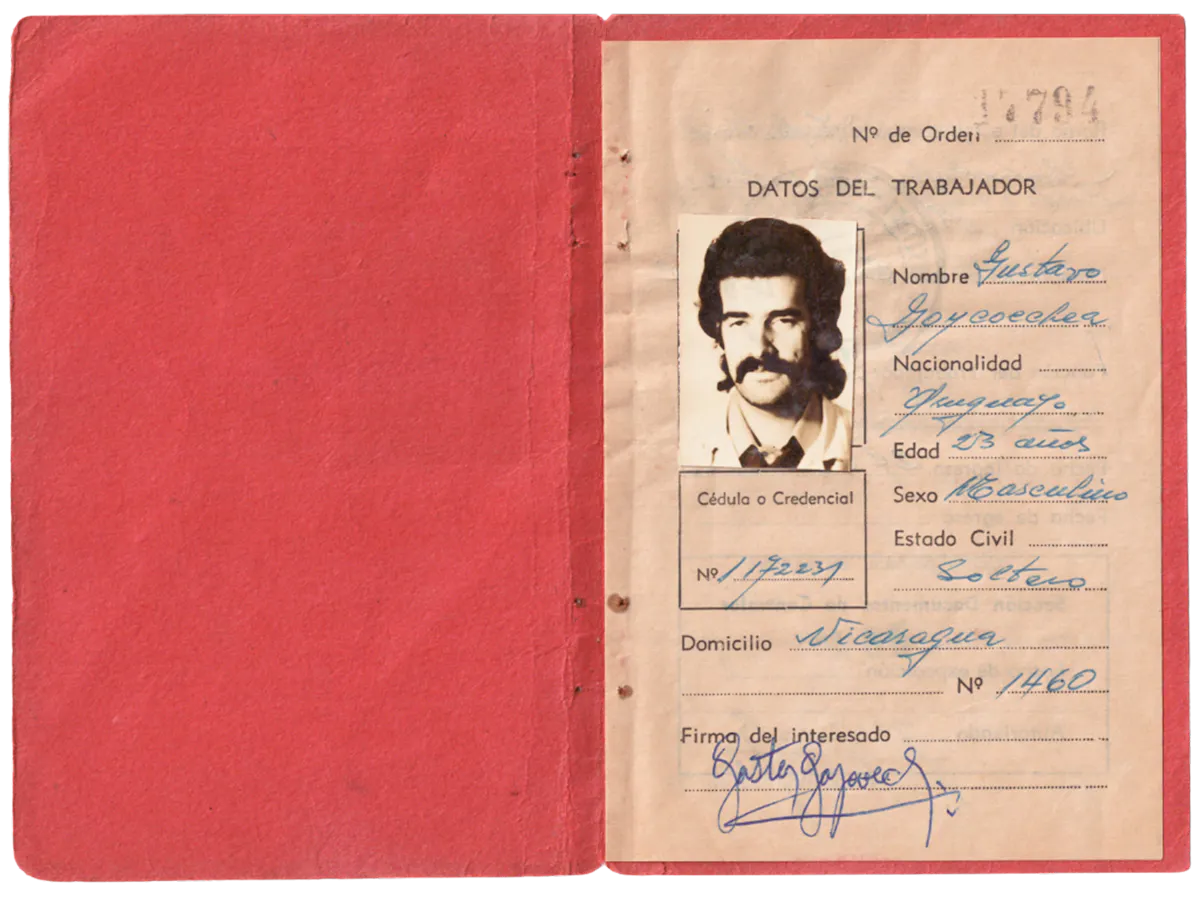 17794
Nº de Orden
DATOS DEL TRABAJADOR
Nombre Gustavo
Goycoechea
Nacionalidad
Uruguayo
Edad 23 años
Sexo Masculino
Cédula o Credencial
Estado Civil
Nº 1172231
Soltero
Domicilio Nicaragua
Nº 1460
Firma del interesado